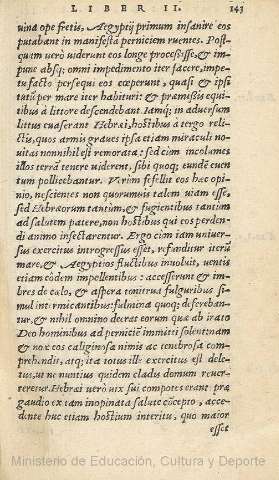 LIBER II. 143
uina ope fretis, Aegyptij primum insanire eos
putabant in manifesta perniciem ruentes. Post-
quam uerò uiderunt eos longe processisse, & im-
pune absq; omni impedimento iter facere, impe-
tu facto persequi eos coeperunt, quasi & ipsi
tutū per mare iter habituri: & praemissis equi-
tibus à littore descendebant. Iamq; in aduersum
littus euaserant Hebraei, hostibus à tergo relic-
tis, quos armis graues ipsa etiam miraculi no-
uitas nonnihil est remorata: sed cum incolumes
illos terrā tenere uiderent, sibi quoq; eundē euen
tum pollicebantur. Verùm fefellit eos haec opi-
nio, nescientes non quorumuis talem uiam esse,
sed Hebraeorum tantùm, & fugientibus tantùm
ad salutem patere, non hostibus qui eos perden-
di animo insectarentur. Ergo cùm iam uniuer-
sus exercitus introgressus esset, refunditur iterū
mare, & Aegyptios fluctibus inuoluit, uentis
etiam eòdem impellentibus: accesserunt & im-
bres de caelo, & aspera tonitrua fulguribus si-
mul intermicantibus: fulmina quoq; defereban-
tur, & nihil omnino deerat eorum quae ab irato
Deo hominibus ad perniciē immitti solent: nam
& nox eos caliginosa nimis ac tenebrosa com-
prehendit, atq; ita totus ille exercitus est dele-
tus, ut ne nuntius quidem cladis domum reuer-
teretur. Hebraei uerò uix sui compotes erant prae
gaudio ex tam inopinata salute cōcepto, acce-
dente huc etiam hostium interitu, quo maior
esset
Ministerio de Educación, Cultura y Deporte